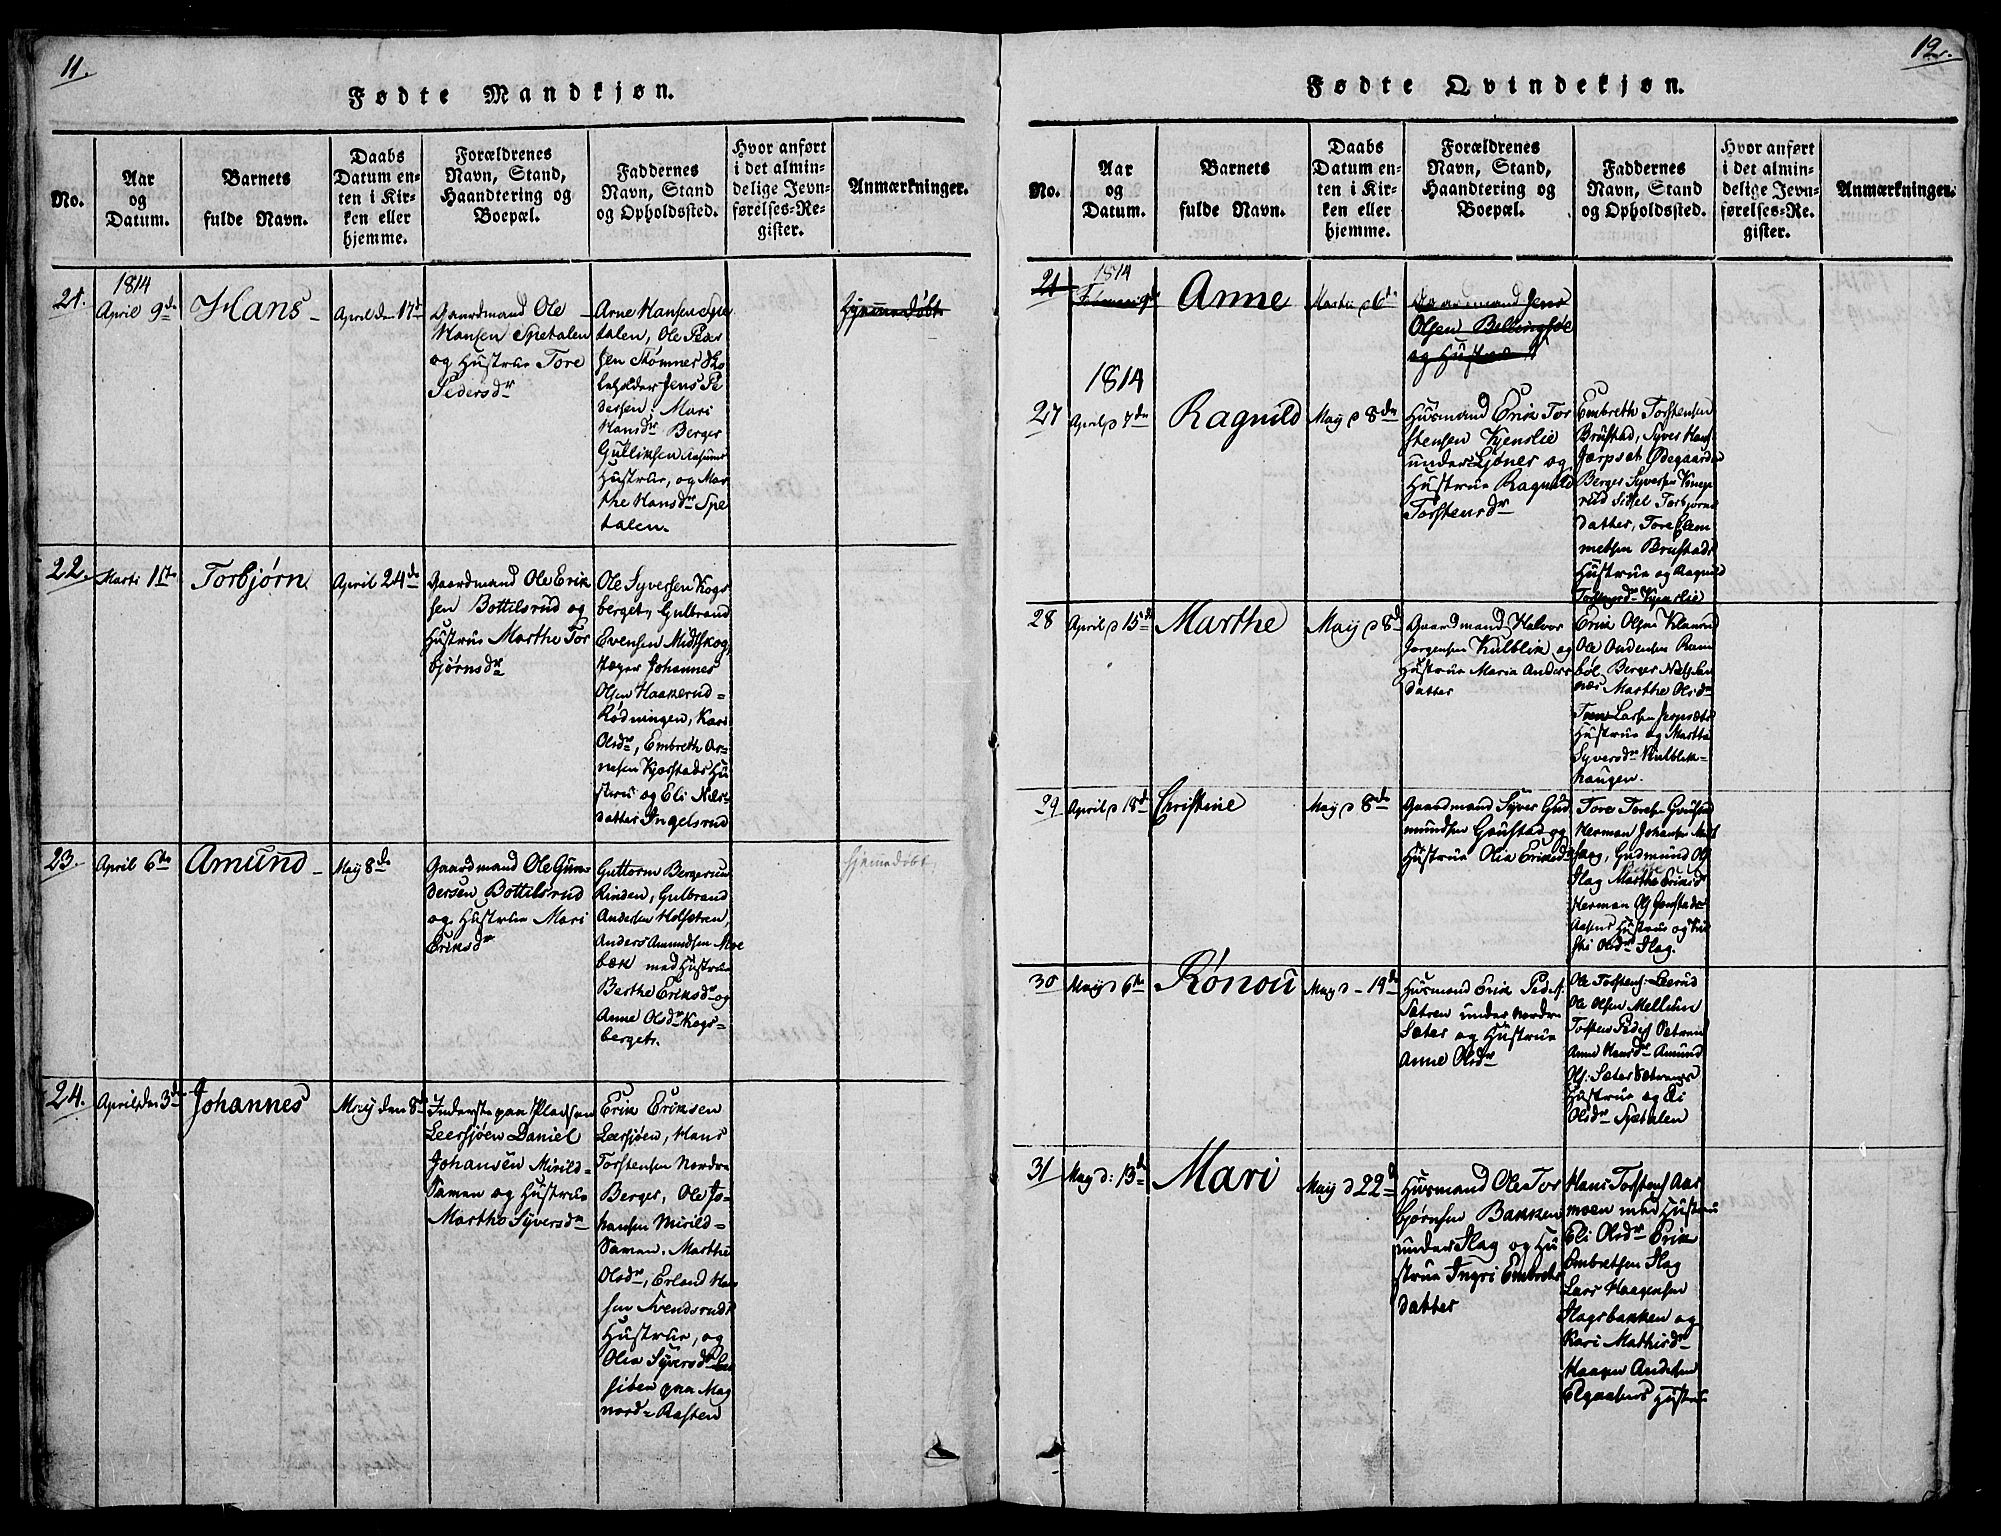 11.
Fødte Mandkjøn.
No.
Aar
og
Datum.
Barnets
fulde Navn.
Daabs
Datum en-
ten i Kir-
ken eller
hjemme.
Forældrenes
Navn, Stand,
Haandtering og
Boepæl.
Faddernes
Navn, Stand
og Opholdssted.
Hvor anført
i det almin-
delige Jevn-
førelses-Re-
gister.
Anmærkninger.
21.
1814
April 9de
Hans
April den 17de
Gaardmand Ole
Hansen Spetalen
og Hustrue Tore
Pedersdr
Arne Hansen Spe
talen, Ole Peder
sen Stømner Sko
leholder Jens Pe
dersen: Mari
Hansdr Berger
Gulliksen Aasums
Hustrue, og Mar
the Hansdr Spe
talen.
Hjemmedøbt
22.
Marti 1ste
Torbjørn
April 24de
Gaardmand Ole Erik
sen Bottilsrud og
Hustrue Marthe Tor
bjørnsdr
Ole Syversen Kogs
berget, Gulbrand
Evensen Midtskog
Jæger Johannes
Olsen Haakerud-
Rødningen, Kari
Olsdr, Embreth Ar-
nesen Kjærstads Hu
strue og Eli Niels
datter Ingelsrud
23.
April 6te
Amund
May 8de
Gaardmand Ole Gun-
dersen Bottilsrud
og Hustrue Mari
Eriksdr
Guttorm Bergerud
Rinden, Gulbrand
Andersen Holsætren,
Anders Amundsen Moe
bæk med Hustrue
Berthe Eriksdr og
Anne Olsdr Kogs-
berget.
hjemmedøbt
24.
April den 3de
Johannes
May den 8de
Inderste paa Pladsen
Leersjøen Daniel
Johansen Mirild-
Samen og Hustrue
Marthe Syversdr
Erik Eriksen
Leersjøen, Hans
Torstensen Nordre
Berger, Ole Jo-
hansen Mirild-
Samen. Marthe
Olsdr, Erland Han
sen Svendsruds
Hustrue, og
Olia Syversdr
paa Mag
nord-Rasten
12.
Fødte Qvindekjøn.
No.
Aar
og
Datum.
Barnets
fulde Navn.
Daabs
Datum en-
ten i Kir-
ken eller
hjemme.
Forældrenes
Navn, Stand,
Haandtering og
Boepæl.
Faddernes
Navn, Stand
og Opholdssted.
Hvor anført
i det almin-
delige Jevn-
førelses-Re-
gister.
Anmærkninger.
21
1814
Anne
Martii d 6te
Gaardmand Jens
Olsen Bellingsøe
og Hustrue
1814
27
April d 7de
Ragnild
May d 8de
Husmand Erik Tor
stensen Kjenslie
under Sjønes og
Hustrue Ragnild
Torstensdr
Embreth Torstensen
Brustad, Syver Hans
Jærpset Ødegaarden
Berger Syversen
Sidsel Torbjørns
datter, Tore Clem
metsen Brustads
Hustrue og Ragnild
Torstensdr Kjenslie
28
April d 15de
Marthe
May d 8de
Gaardmand Halvor
Jørgensen Kulblik og
Hustrue Maria Anders
datter
Erik Olsen
Ole Andersen Ram
bøl Berger
Marthe Olsdr
Larsen Jerpsets
Hustrue og Marthe
Syversdr Kulblik-
haugen.
29
April d 18de
Christine
May d 8de
Gaardmand Syver Gud
mundsen Goustad og
Hustrue Olia Eriksdr
Tore Toresen Goustad
Herman Johansen
Gudmund Ols
Ilag Marthe Eriksdr
Herman Ols Goustad-
Aasens Hustrue og
Olsdr Ilag.
30
May d 6te
Rønou
May d-19de
Husmand Erik Peders
Sætren under Nordre
Sæter og Hustrue
Anne Olsdr
Ole Torstens: Leerud
Ole Olsen Mellum
Torsten Peders Sætren
Anne Hansdr Amund
Ols: Sæter Sætrens
Hustrue og Eli
Olsdr Spetalen
31
May d: 13de
Mari
May d 22de
Husmand Ole Tor
bjørnsen Bakken
under Ilag og Hu
strue Ingri Embreths
datter
Hans Torstens Aas
moen med Hustrue
Eli Olsdr Erik
Embretsen Ilag
Lars Haagensen
Ilagsbakken og
Kari Mathisdr
Haagen Andersen
Elgaasens Hustrue